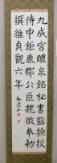 九成宮醴泉銘秘書監檢校
侍中鉅鹿郡公臣魏徵奉勅
撰維貞觀六年